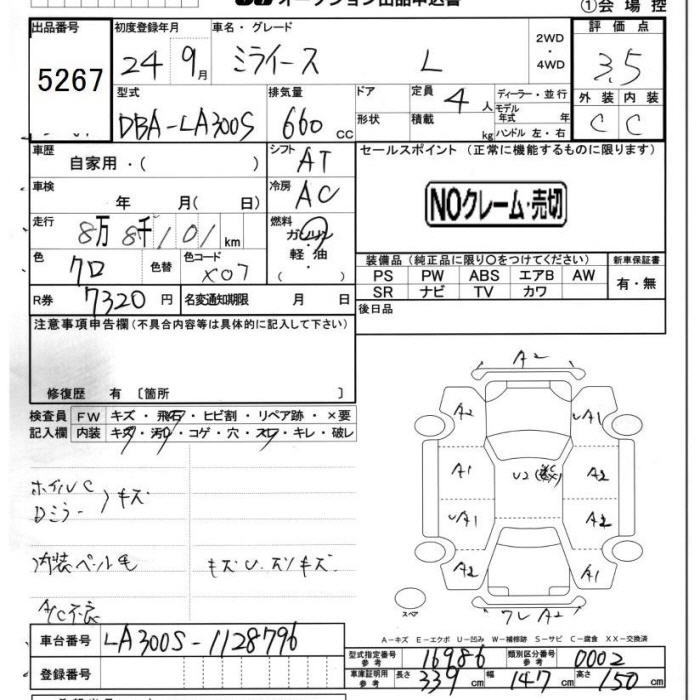 オークション出品申込書
①会場控
出品番号 初度登録年月 車名・グレード 評価点
5267 24 9月 ミライース L 2WD・4WD 3.5
型式 排気量 ドア 定員 4人 ディーラー・並行 外装 内装
DBA-LA300S 660cc 形状 積載 kg モデル年式 年 ハンドル 左・右 C C
車歴 自家用・( ) シフト AT セールスポイント (正常に機能するものに限ります)
車検 年 月( 日) 冷房 AC
NOクレーム・売切
走行 8万8千101km 燃料 ガソリン・軽油・( )
色 クロ 色替 色コード X07
装備品 (純正品に限り○をつけてください) 新車保証書
PS PW ABS エアB AW 有・無
SR ナビ TV カワ
R券 7320円 名変通知期限 月 日
後日品
注意事項申告欄(不具合内容等は具体的に記入して下さい)
修復歴 有 〔箇所 〕
検査員 FW キズ・飛石・ヒビ割・リペア跡・×要
記入欄 内装 キズ・汚レ・コゲ・穴・スレ・キレ・破レ
ホイルC
Dミラー 〉キズ
キズU.スリキズ
A/C不良
A2
A2 A1
A1 U2 A2
A1 A2
A2 A1
スペア
ワレ A2
A-キズ E-エクボ U-凹み W-補修跡 S-サビ C-腐食 XX-交換済
車台番号 LA300S-1128796
型式指定番号 参考 16986 類別区分番号 参考 0002
登録番号
車庫証明用 参考 長さ 339cm 幅 147cm 高さ 150cm